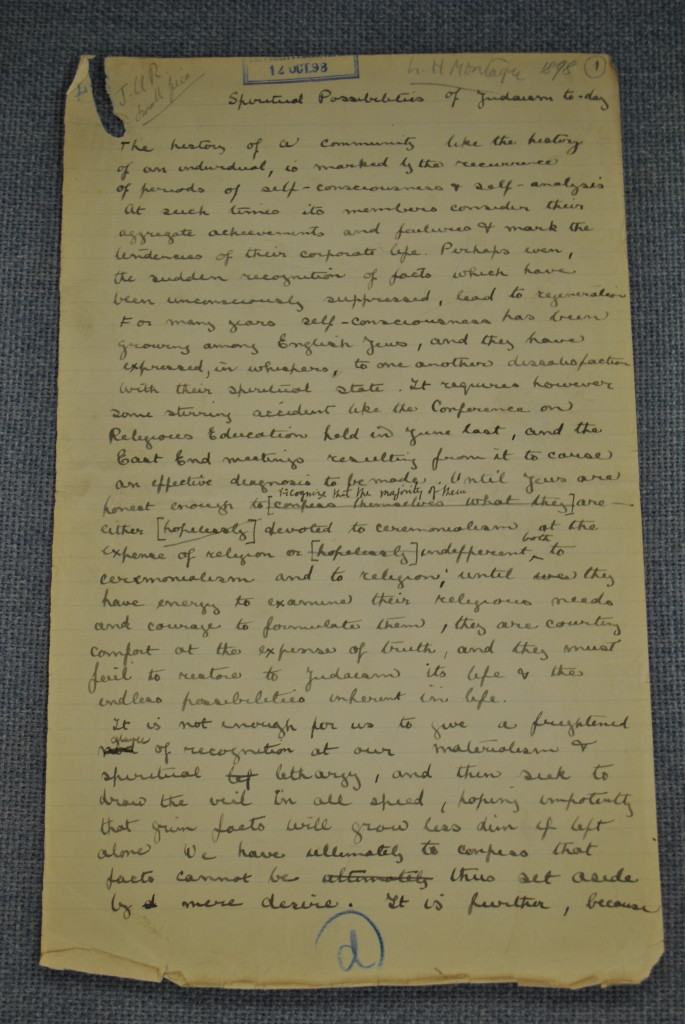 J.Q.R
small pica
12 OCT.98
L. H Montagu 1898 1
Spiritual Possibilities of Judaism to-day
The history of a community like the history
of an individual, is marked by the recurrence
of periods of self-consciousness & self-analysis
At such times its members consider their
aggregate achievements and failures & mark the
tendencies of their corporate life. Perhaps even,
the sudden recognition of facts which have
been unconsciously suppressed, lead to regeneration
For many years self-consciousness has been
growing among English Jews, and they have
expressed, in whispers, to one another dissatisfaction
with their spiritual state. It requires however
some stirring accident like the Conference on
Religious Education held in June last, and the
East End meetings resulting from it to cause
an effective diagnosis to be made. Until Jews are
recognise that the majority of them
honest enough to [confess themselves what they] are
either [hopelessly] devoted to ceremonialism at the
expense of religion or [hopelessly] indifferent both to
ceremonialism and to religion; until they
have energy to examine their religious needs
and courage to formulate them, they are courting
comfort at the expense of truth, and they must
fail to restore to Judaism its life & the
endless possibilities inherent in life.
It is not enough for us to give a frightened
glance
nod of recognition at our materialism &
spiritual let lethargy, and then seek to
draw the veil in all speed, hoping impotently
that grim facts will grow less dim if left
alone We have ultimately to confess that
facts cannot be ultimately thus set aside
by mere desire. It is further, because
d